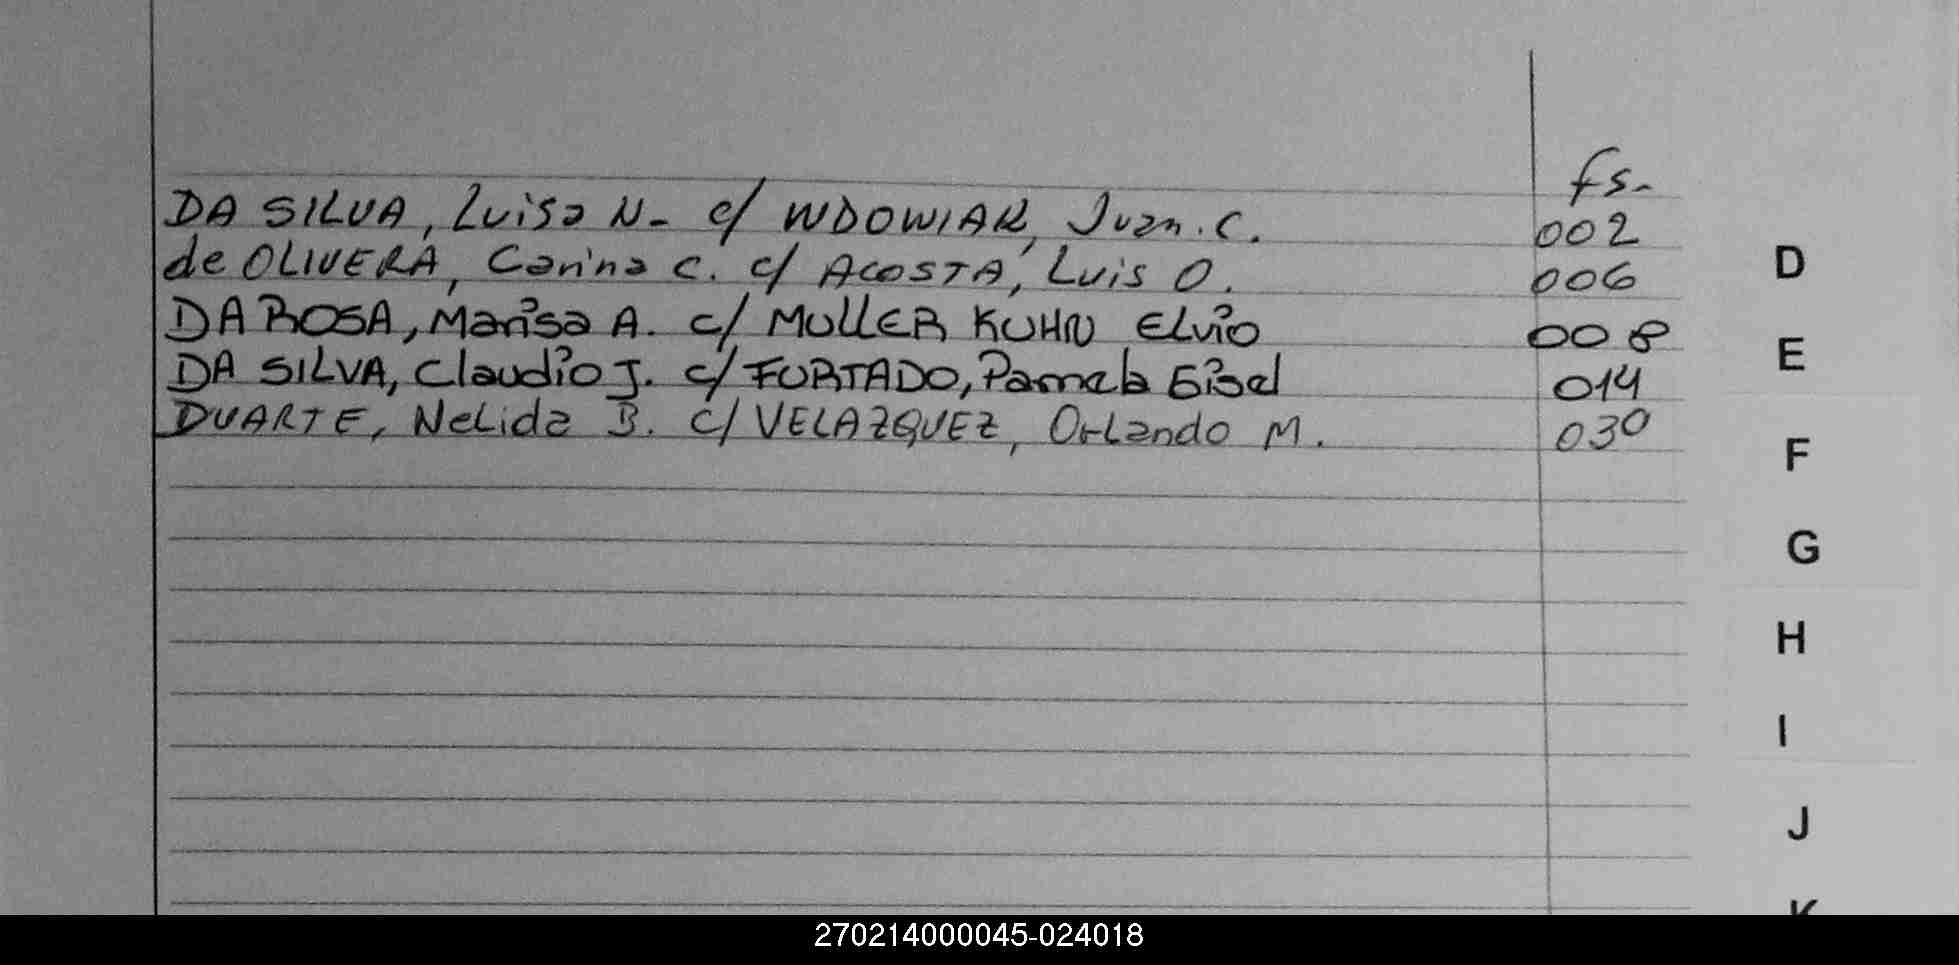 fs.
DA SILVA, Luisa N. c/ WDOWIAK, Juan. C. 002
de OLIVERA, Carina C. c/ ACOSTA, Luis O. 006
DA ROSA, Marisa A. c/ MULLER KUHN Elvio 008
DA SILVA, Claudio J. c/ FURTADO, Pamela Gisel 014
DUARTE, Nelida B. c/ VELAZQUEZ, Orlando M. 030
D
E
F
G
H
I
J
K
270214000045-024018